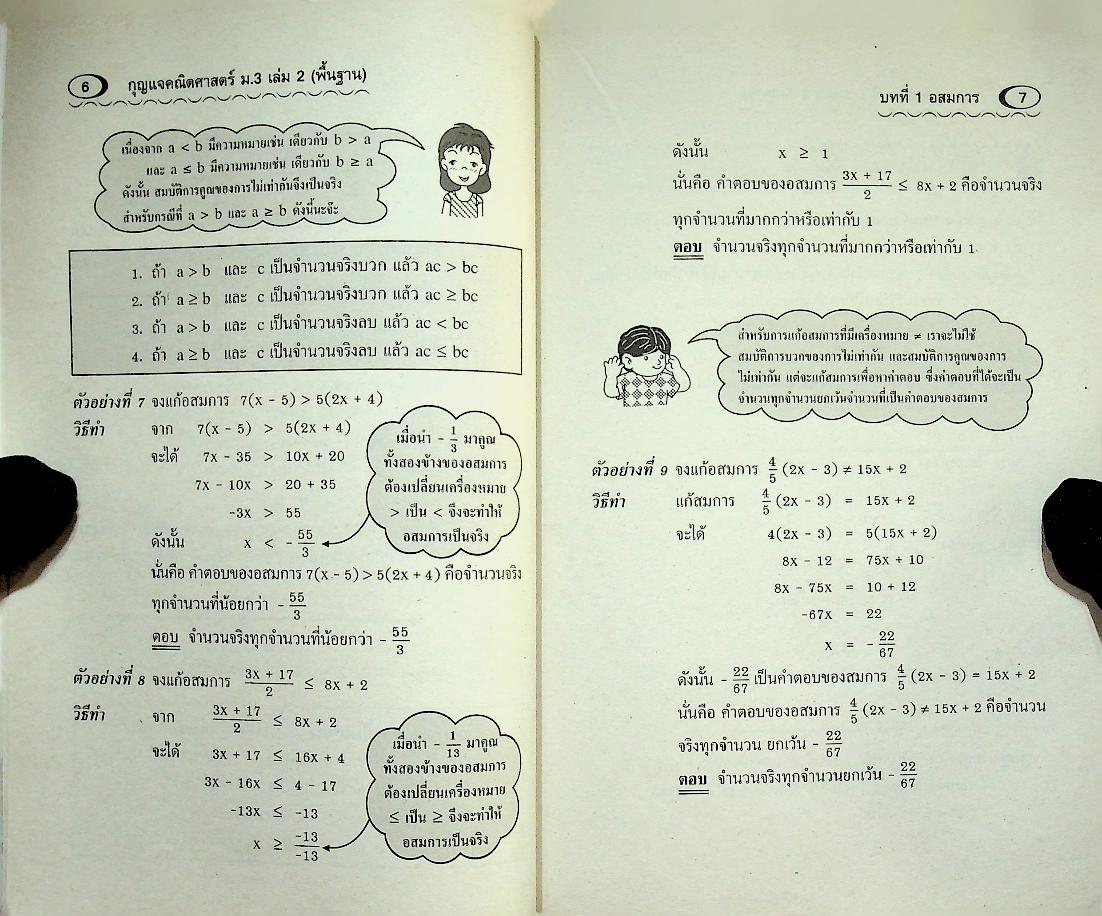 6 กุญแจคณิตศาสตร์ ม.3 เล่ม 2 (พื้นฐาน)
เนื่องจาก a < b มีความหมายเช่น เดียวกับ b > a
และ a ≤ b มีความหมายเช่น เดียวกับ b ≥ a
ดังนั้น สมบัติการคูณของการไม่เท่ากันจึงเป็นจริง
สำหรับกรณีที่ a > b และ a ≥ b ดังนี้นะจ๊ะ
1. ถ้า a > b และ c เป็นจำนวนจริงบวก แล้ว ac > bc
2. ถ้า a ≥ b และ c เป็นจำนวนจริงบวก แล้ว ac ≥ bc
3. ถ้า a > b และ c เป็นจำนวนจริงลบ แล้ว ac < bc
4. ถ้า a ≥ b และ c เป็นจำนวนจริงลบ แล้ว ac ≤ bc
ตัวอย่างที่ 7 จงแก้อสมการ 7(x - 5) > 5(2x + 4)
วิธีทำ จาก 7(x - 5) > 5(2x + 4)
จะได้ 7x - 35 > 10x + 20
7x - 10x > 20 + 35
-3x > 55
ดังนั้น x < -55/3
เมื่อนำ -1/3 มาคูณ
ทั้งสองข้างของอสมการ
ต้องเปลี่ยนเครื่องหมาย
> เป็น < จึงจะทำให้
อสมการเป็นจริง
นั่นคือ คำตอบของอสมการ 7(x - 5) > 5(2x + 4) คือจำนวนจริง
ทุกจำนวนที่น้อยกว่า -55/3
ตอบ จำนวนจริงทุกจำนวนที่น้อยกว่า -55/3
ตัวอย่างที่ 8 จงแก้อสมการ (3x + 17)/2 ≤ 8x + 2
วิธีทำ จาก (3x + 17)/2 ≤ 8x + 2
จะได้ 3x + 17 ≤ 16x + 4
3x - 16x ≤ 4 - 17
-13x ≤ -13
x ≥ -13/-13
เมื่อนำ -1/13 มาคูณ
ทั้งสองข้างของอสมการ
ต้องเปลี่ยนเครื่องหมาย
≤ เป็น ≥ จึงจะทำให้
อสมการเป็นจริง
บทที่ 1 อสมการ 7
ดังนั้น x ≥ 1
นั่นคือ คำตอบของอสมการ (3x + 17)/2 ≤ 8x + 2 คือจำนวนจริง
ทุกจำนวนที่มากกว่าหรือเท่ากับ 1
ตอบ จำนวนจริงทุกจำนวนที่มากกว่าหรือเท่ากับ 1
สำหรับการแก้อสมการที่มีเครื่องหมาย ≠ เราจะไม่ใช้
สมบัติการบวกของการไม่เท่ากัน และสมบัติการคูณของการ
ไม่เท่ากัน แต่จะแก้สมการเพื่อหาคำตอบ ซึ่งคำตอบที่ได้จะเป็น
จำนวนทุกจำนวนยกเว้นจำนวนที่เป็นคำตอบของสมการ
ตัวอย่างที่ 9 จงแก้อสมการ 4/5(2x - 3) ≠ 15x + 2
วิธีทำ แก้สมการ 4/5(2x - 3) = 15x + 2
จะได้ 4(2x - 3) = 5(15x + 2)
8x - 12 = 75x + 10
8x - 75x = 10 + 12
-67x = 22
x = -22/67
ดังนั้น -22/67 เป็นคำตอบของสมการ 4/5(2x - 3) = 15x + 2
นั่นคือ คำตอบของอสมการ 4/5(2x - 3) ≠ 15x + 2 คือจำนวน
จริงทุกจำนวน ยกเว้น -22/67
ตอบ จำนวนจริงทุกจำนวนยกเว้น -22/67